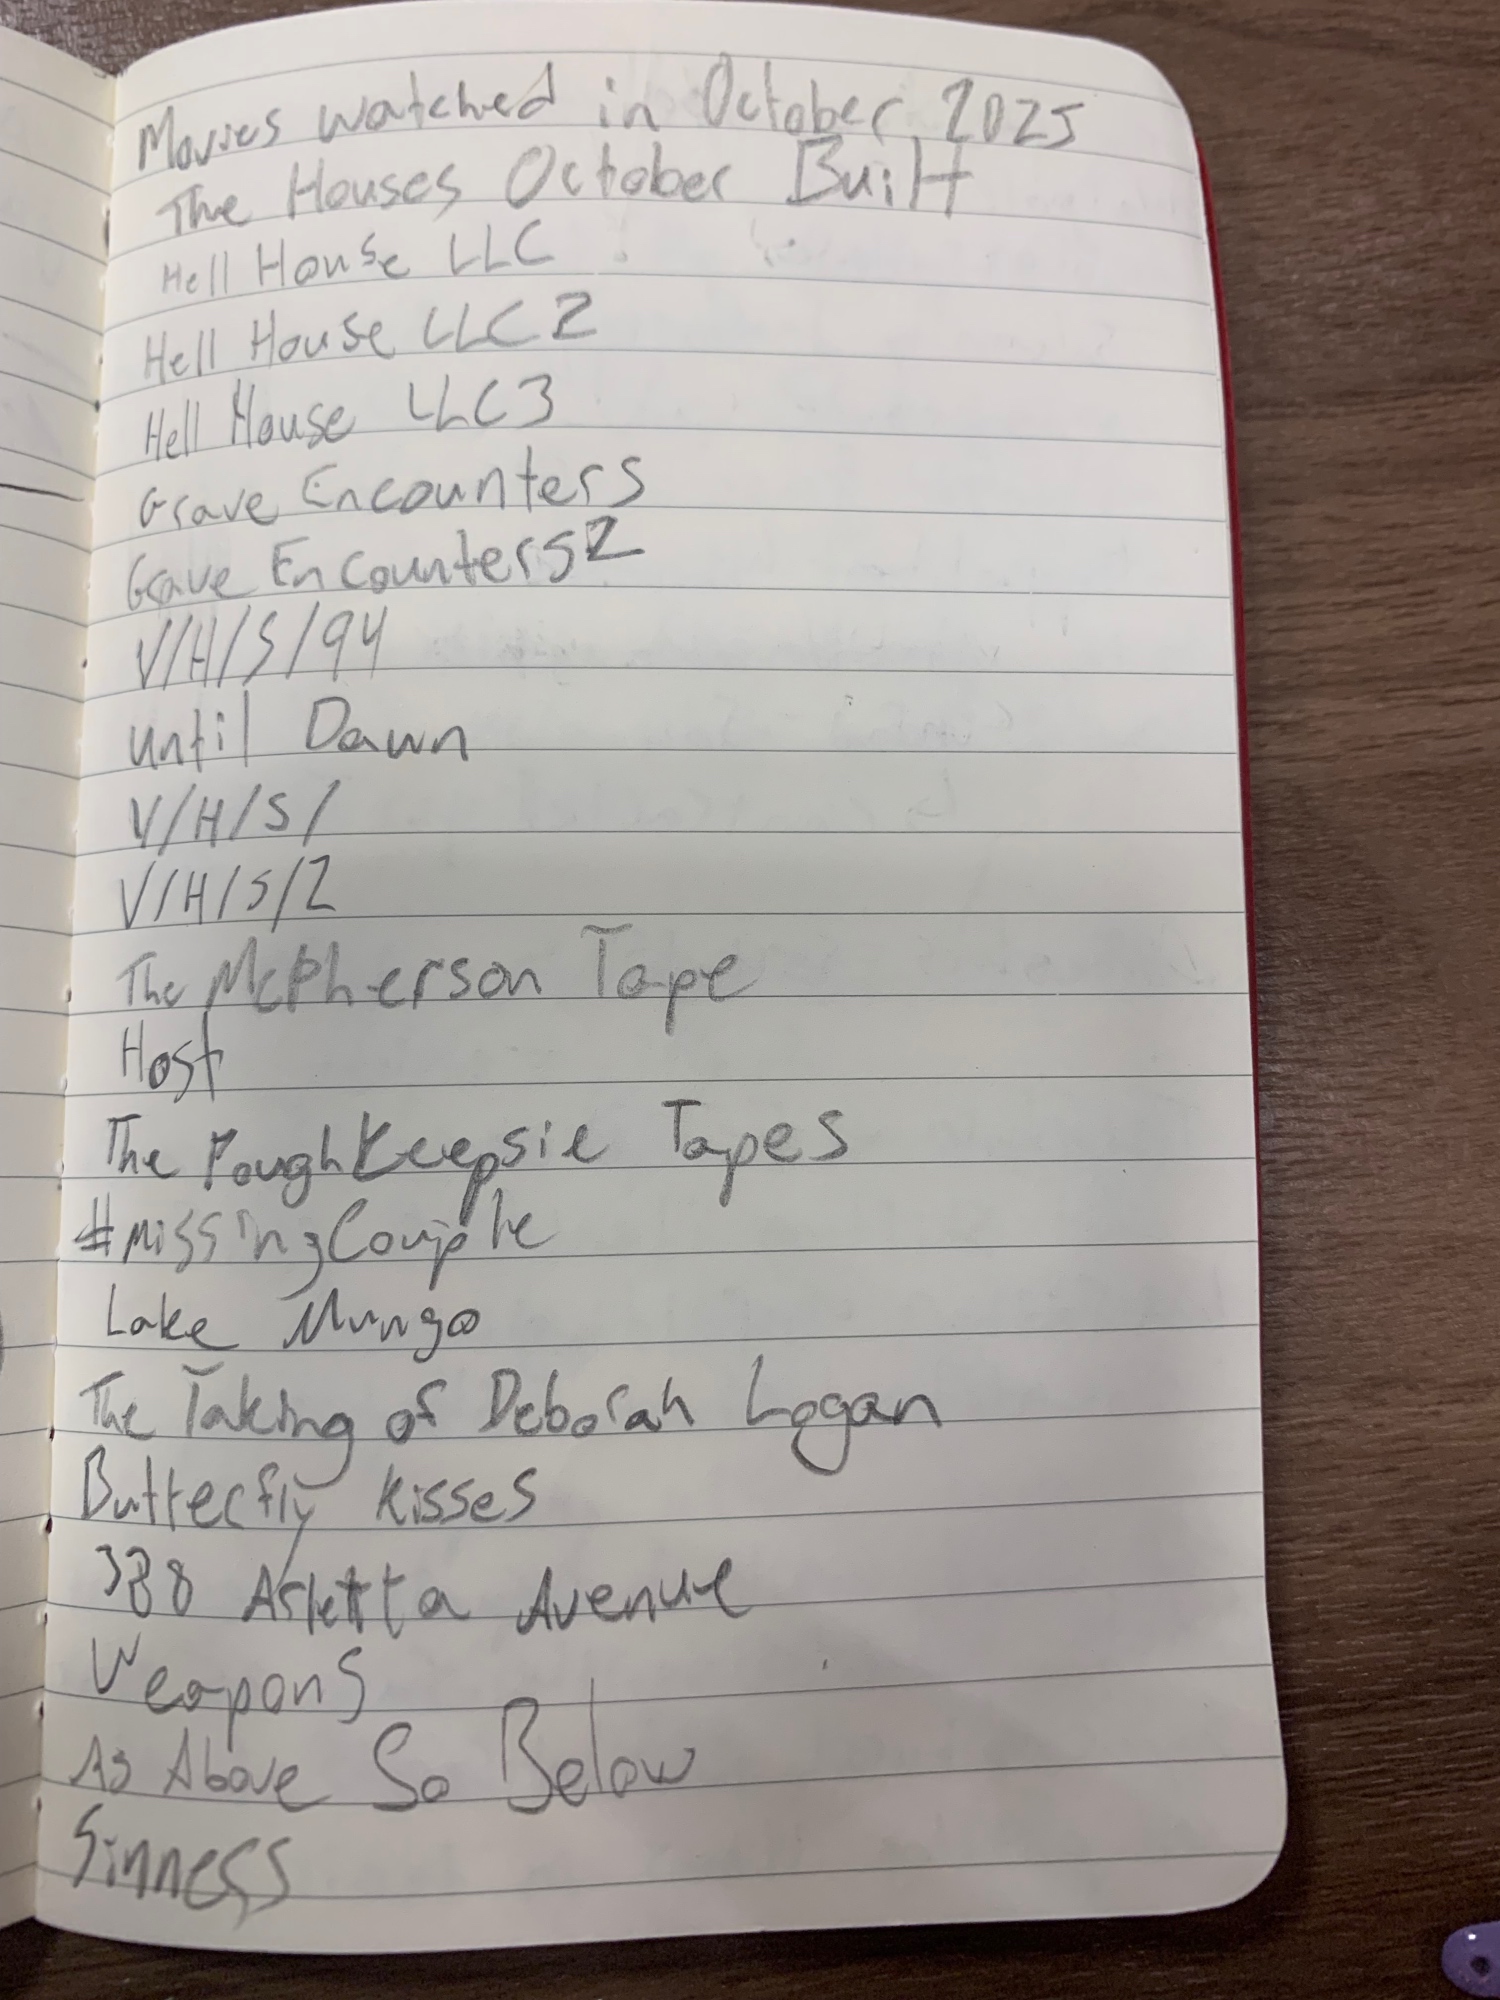 Movies watched in October 2025
The Houses October Built
Hell House LLC
Hell House LLC 2
Hell House LLC 3
Grave Encounters
Grave Encounters 2
V/H/S/94
Until Dawn
V/H/S/
V/H/S/2
The McPherson Tape
Host
The Poughkeepsie Tapes
#MissingCouple
Lake Mungo
The Taking of Deborah Logan
Butterfly Kisses
388 Arletta Avenue
Weapons
As Above So Below
Sinners